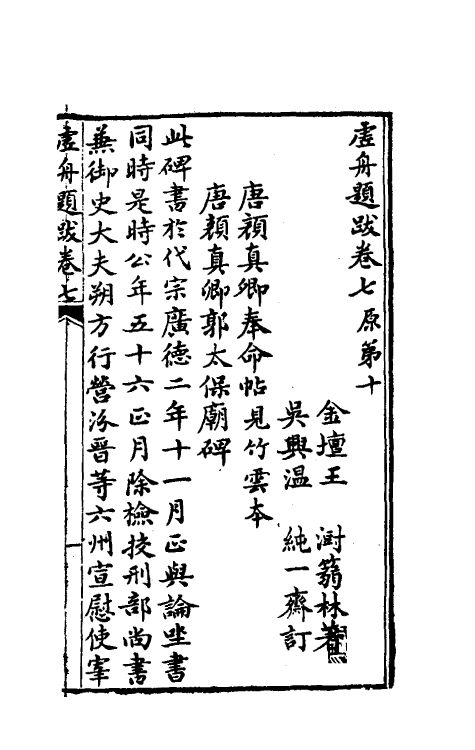 虛舟題跋卷七原第十
金壇王　澍蒻林著
吳興溫　純一齋訂
唐顏真卿奉命帖見竹雲本
唐顏真卿郭太保廟碑
此碑書於代宗廣德二年十一月正與論坐書
同時是時公年五十六正月除檢挍刑部尚書
兼御史大夫朔方行營汾晉等六州宣慰使宰
虛舟題跋卷七
一